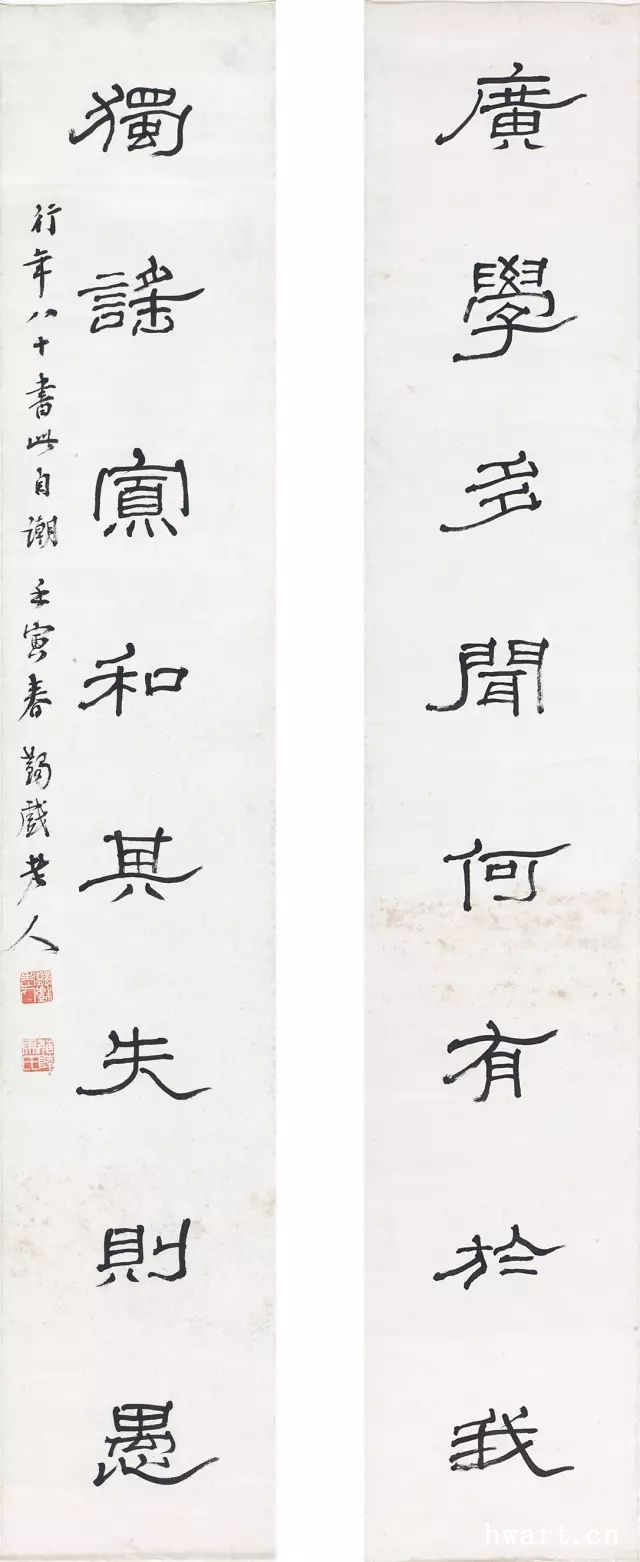 廣學多聞何有於我
獨謠寡和其失則愚
行年八十書此自謿 壬寅春 蠲戲老人
hwart.cn